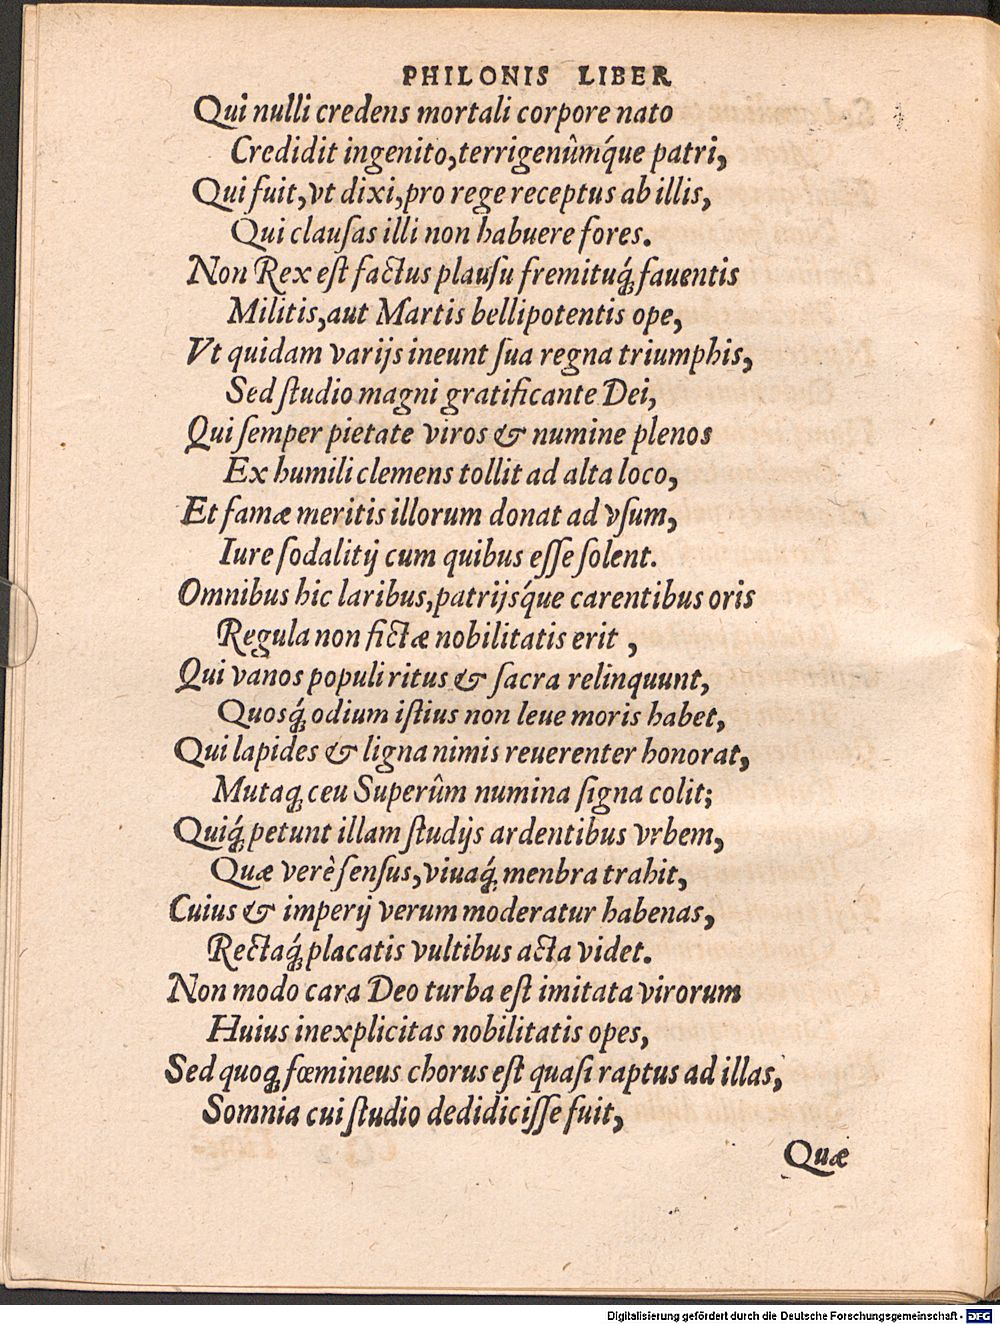 PHILONIS LIBER
Qui nulli credens mortali corpore nato
Credidit ingenito, terrigenûmq́ue patri,
Qui fuit, vt dixi, pro rege receptus ab illis,
Qui clauſas illi non habuere fores.
Non Rex eſt factus plauſu fremituq́; fauentis
Militis, aut Martis bellipotentis ope,
Vt quidam varijs ineunt ſua regna triumphis,
Sed ſtudio magni gratificante Dei,
Qui ſemper pietate viros & numine plenos
Ex humili clemens tollit ad alta loco,
Et famæ meritis illorum donat ad vſum,
Iure ſodalitij cum quibus eſſe ſolent.
Omnibus hic laribus, patrijsq́ue carentibus oris
Regula non fictæ nobilitatis erit,
Qui vanos populi ritus & ſacra relinquunt,
Quosq́; odium iſtius non leue moris habet,
Qui lapides & ligna nimis reuerenter honorat,
Mutaq; ceu Superûm numina ſigna colit;
Quiq́; petunt illam ſtudijs ardentibus vrbem,
Quæ verè ſenſus, viuaq́; menbra trahit,
Cuius & imperij verum moderatur habenas,
Rectaq́; placatis vultibus acta videt.
Non modo cara Deo turba eſt imitata virorum
Huius inexplicitas nobilitatis opes,
Sed quoq; fœmineus chorus eſt quaſi raptus ad illas,
Somnia cui ſtudio dedidiciſſe fuit,
Quæ
Digitalisierung gefördert durch die Deutsche Forschungsgemeinschaft - DFG